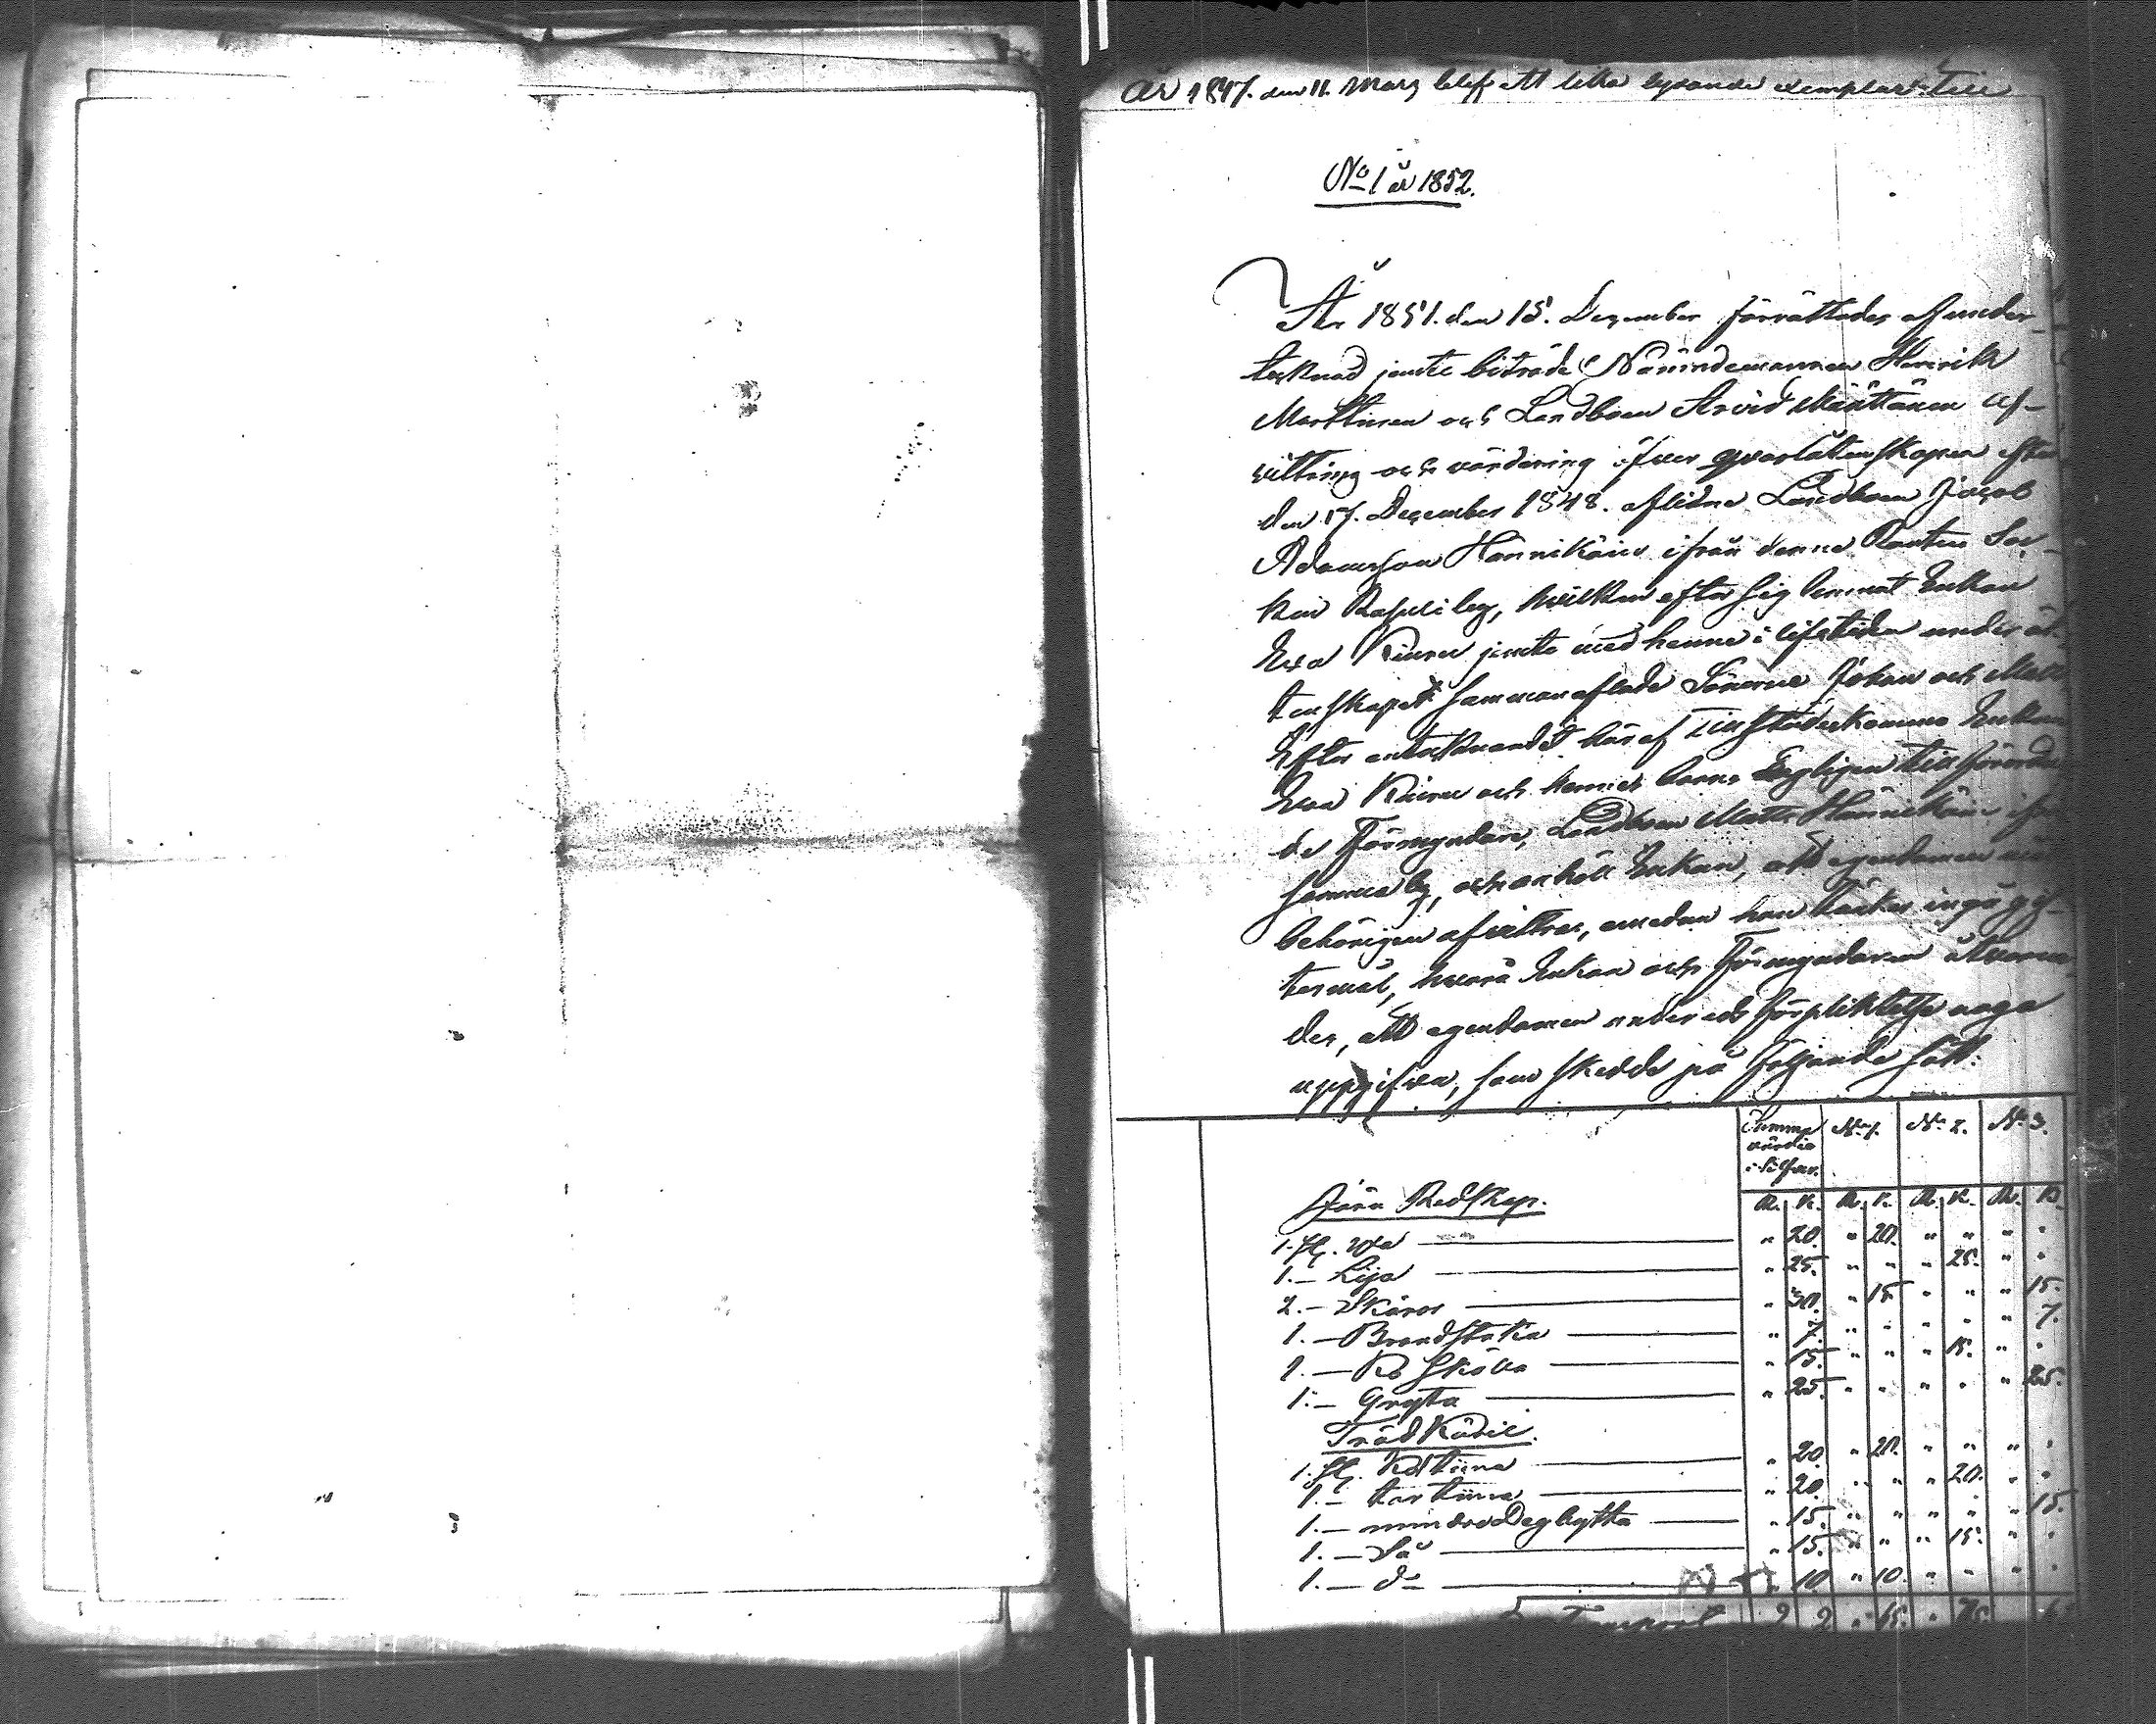 År 1847. den 11. Mars blef ett lika lydande exemplar till
No 1 år 1852.
År 1851. den 15. December förrättades af under-
tecknad jemte biträde Nämndemannen Henrik
Marttinen och Landboen Arvid Määttänen af-
vittring och värdering öfver qvarlåtenskapen efter
den 17. December 1848. aflidne Landboen Jacob
Adamsson Hännikäin ifrån denne Rautus Soc-
ken by, hvilken efter sig lemnat Enkan
Eva Kiuru jemte med henne i lifstiden under äk-
tenskapet sammanaflade Sönerne Johan och Matts
Efter antecknandet häraf Tillstädeskommo Enkan
Eva Kiuru och hennes barns Lagligen till förordna-
de Förmyndare, Landboen Matts Hännikäin ifrån
samma by, och anhöll Enkan, att egendomen
behörigen afvittras, emedan hon tänker ingå gif-
termål, hvarå Enkan och Förmyndaren åtvarna-
des, att egendomen under eds förpliktelse noga
uppgifva, som skedde på följande sätt:
Summa värdie i Silfver. No 1. No 2. No 3.
Järn Redskap. R. K. R. K. R. K. R. K.
1. st. yxa — " 20. " 20. " " " "
1. — Lija — " 25. " " " 25. " "
2. — Skäror — " 30. " 15 " " " 15.
1. — Brandstaka — " 7. " " " " " 7.
1. — Ko Skälla — " 15. " " " 15. " "
1. — Gryta — " 25. " " " " " 25.
Träd Käril.
1. st. tiina — " 20. " 20. " " " "
1. — tiina — " 20 " " " 20. " "
1. — mindre Degbytta — " 15. " " " " " 15.
1. — Så — " 15. " " " 15. " "
1. — do — " 10 " 10. " " " "
Transport 2 2 " 65. " 75.